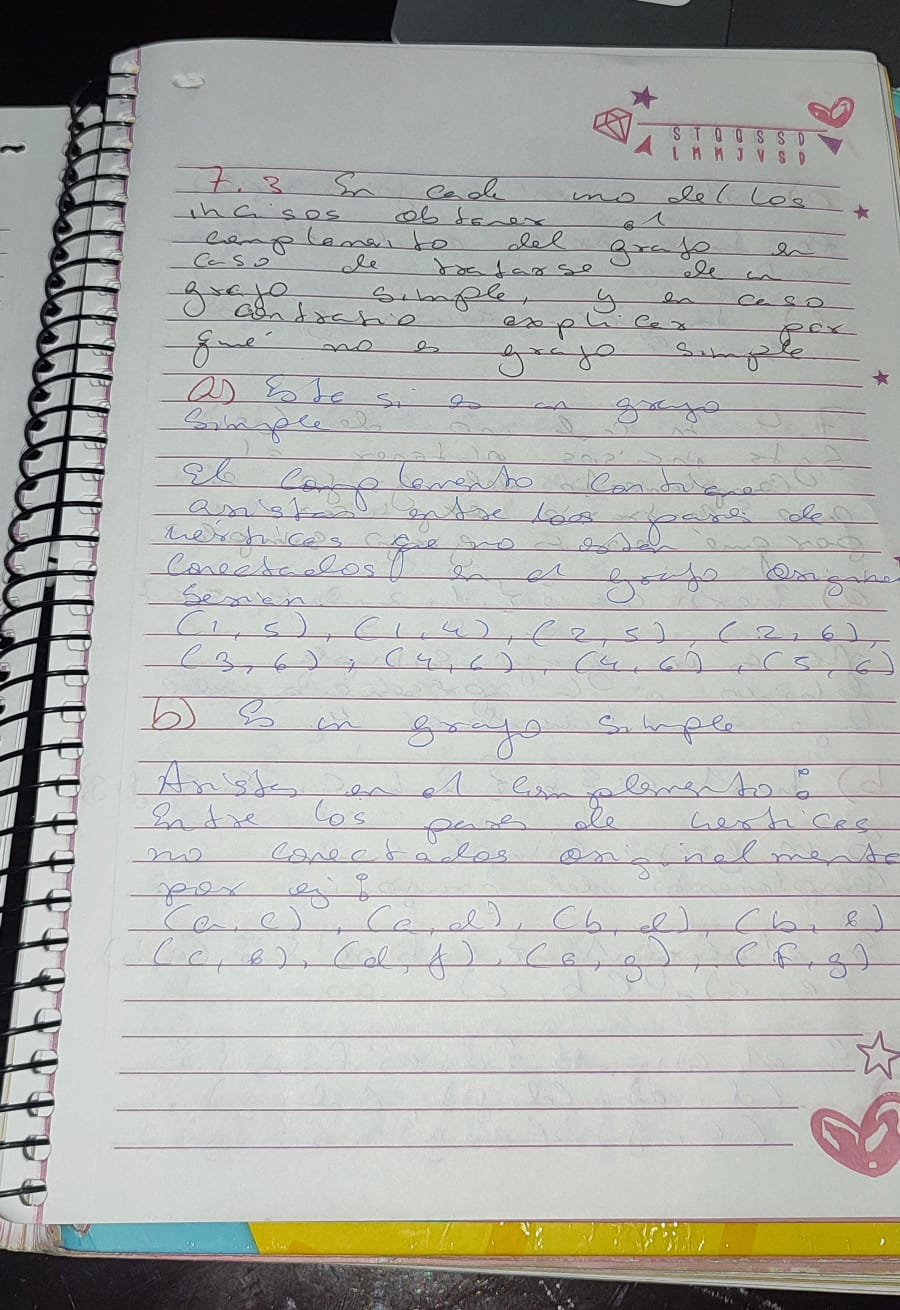 S T Q Q S S D
L M M J V S D
7.3 En cada uno del los
incisos obtener el
complemento del grafo en
caso de tratarse de un
grafo simple, y en caso
contrario explicar por
qué no es grafo simple
a) Este si es un grafo
simple
El complemento contiene
aristas entre los pares de
vertices que no estan
conectados en el grafo
Serian
(1, 5), (1, 4), (2, 5), (2, 6),
(3, 6), (4, 6), (4, 6), (5, 6)
b) Es un grafo simple
Aristas en el complemento:
Entre los pares de vertices
no conectados originalmente
por ej:
(a, c), (a, d), (b, d), (b, e)
(c, e), (d, f), (e, g), (f, g)